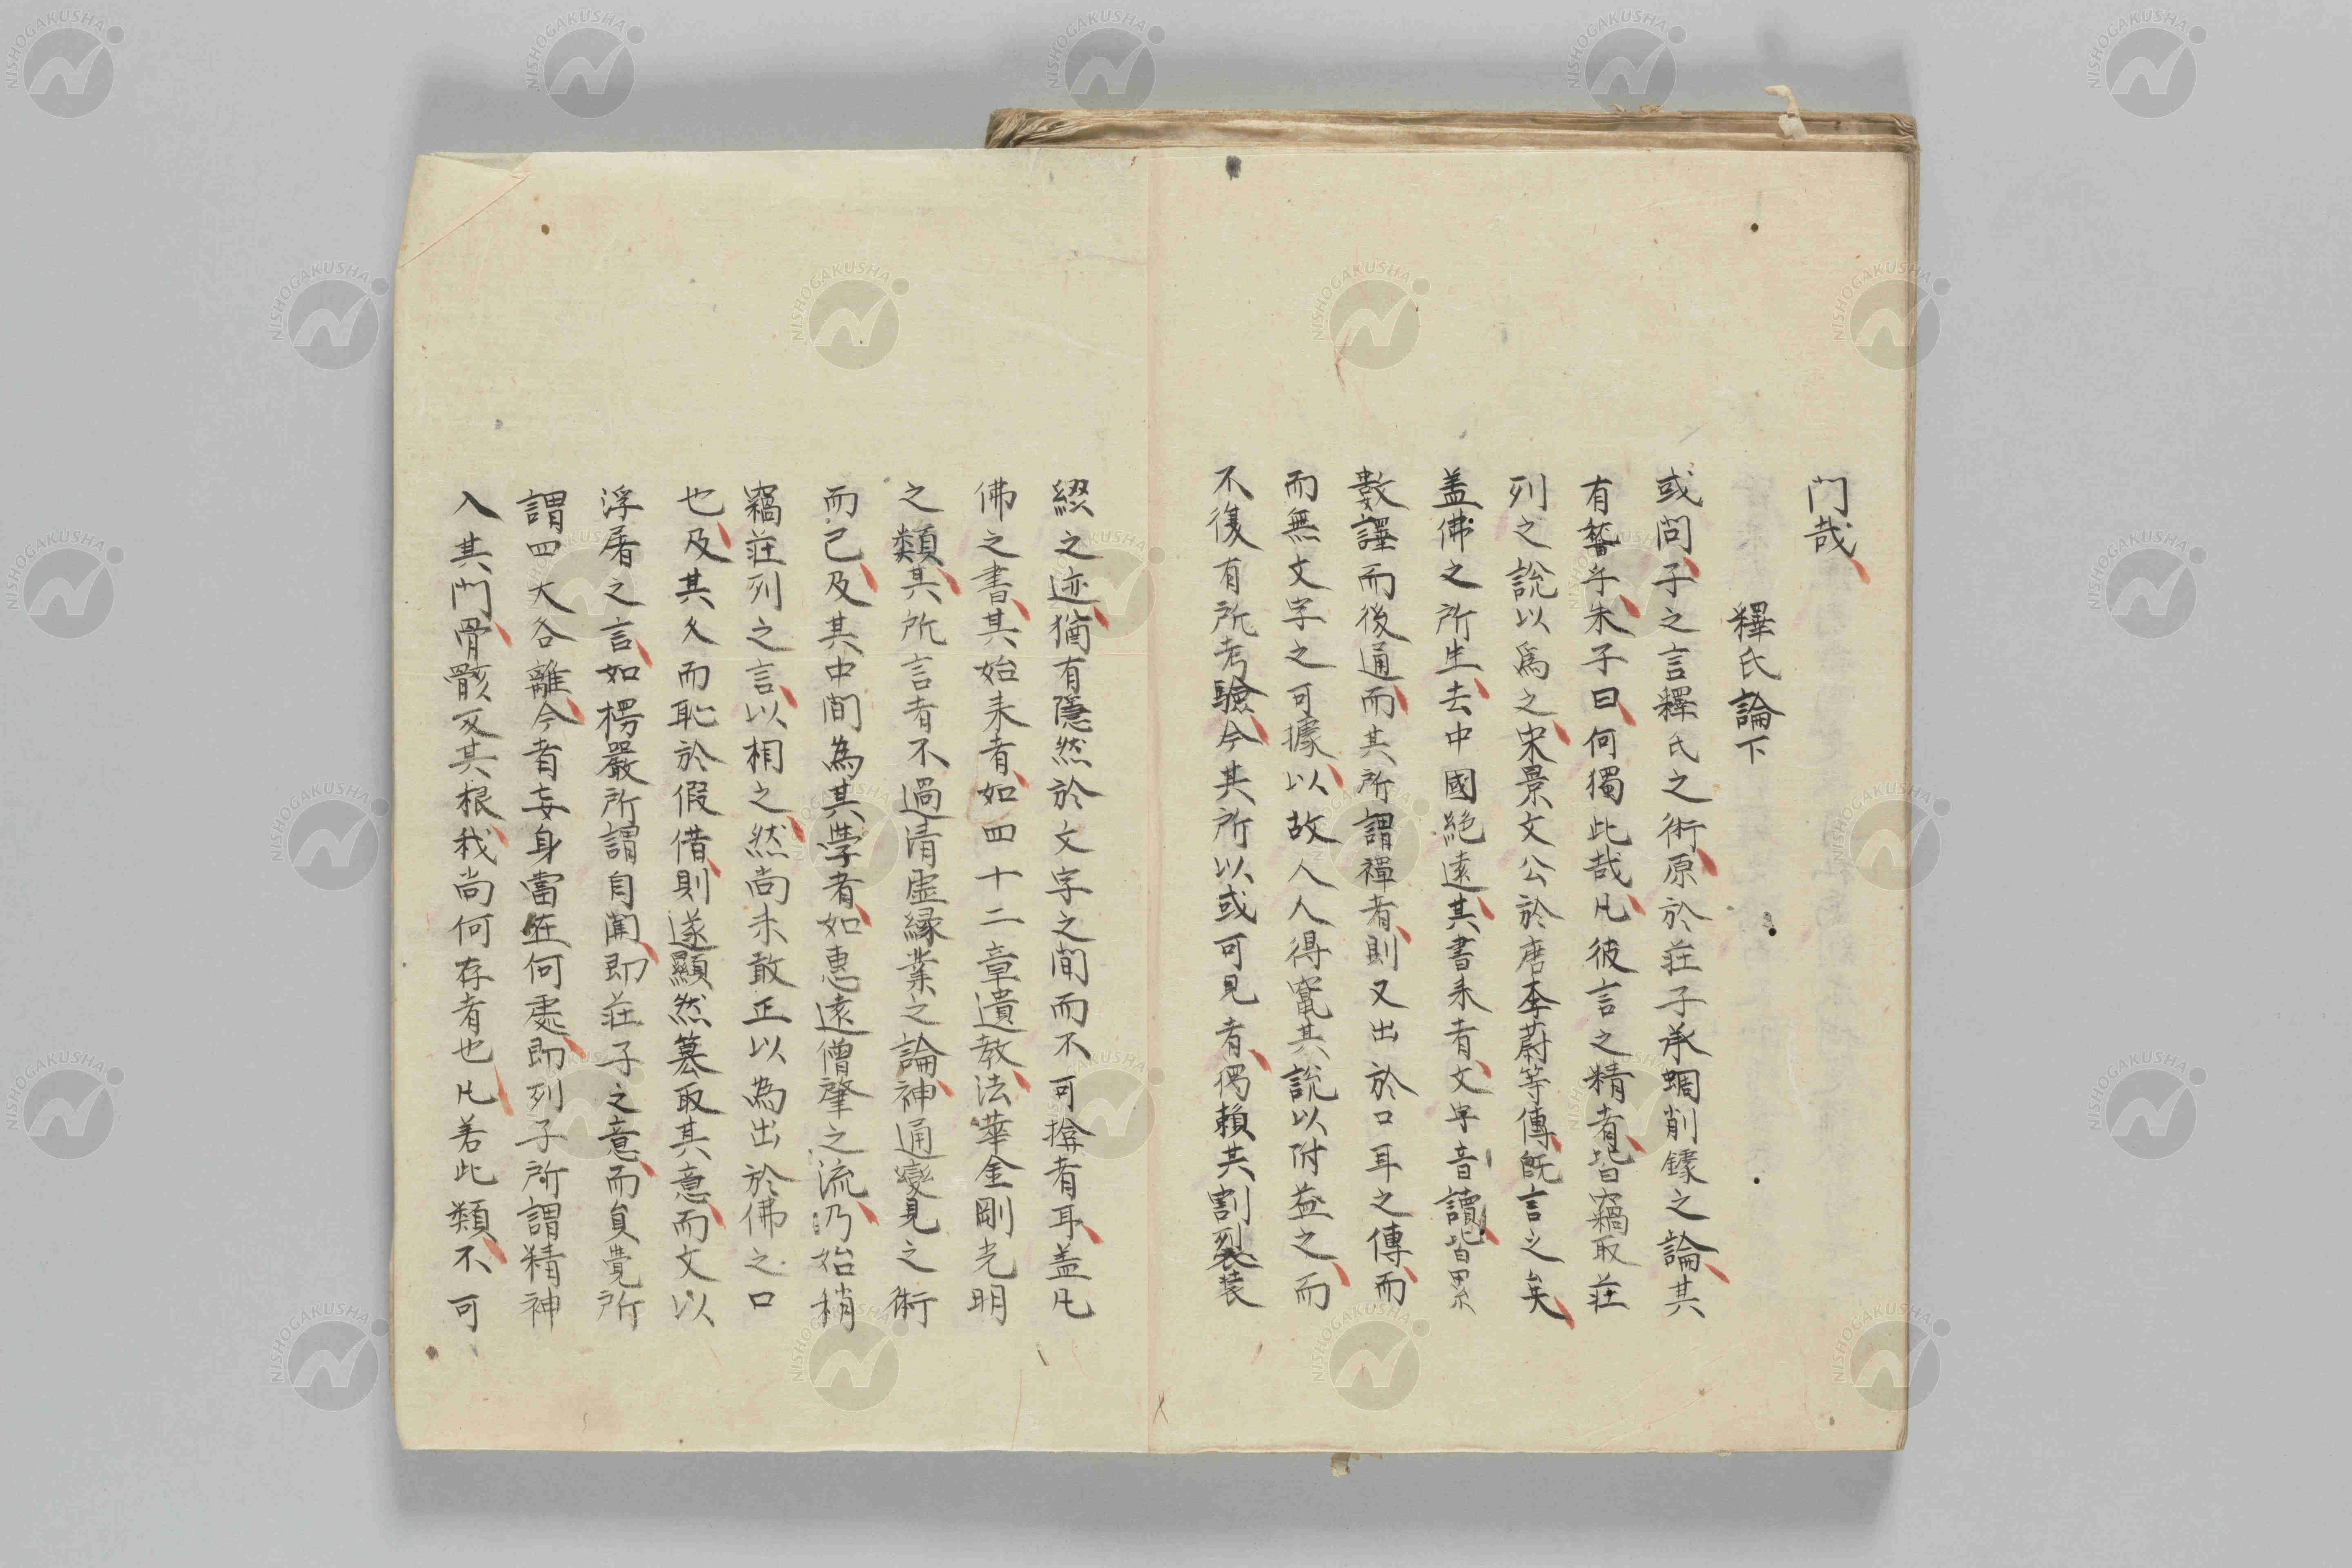 門哉
釋氏論下
或問子之言釋氏之術原於莊子承蜩削鐻之論其
有稽乎朱子曰何獨此哉凡彼言之精者皆竊取莊
列之說以爲之宋景文公於唐李蔚等傳既言之矣
盖佛之所生去中國絶遠其書来者文字音讀皆累
數譯而後通而其所謂禪者則又出於口耳之傳而
而無文字之可據以故人人得竄其說以附益之而
不復有所考驗今其所以或可見者獨賴其割裂装
綴之迹猶有隱然於文字之間而不可揜者耳盖凡
佛之書其始来者如四十二章遺教法華金剛光明
之類其所言者不過清虛縁業之論神通變見之術
而已及其中間為其學者如惠遠僧肇之流乃始稍
竊莊列之言以相之然尚未敢正以為出於佛之口
也及其久而恥於假借則遂顯然簒取其意而文以
浮屠之言如楞嚴所謂自聞即莊子之意而圓覺所
謂四大各離今者妄身當在何處即列子所謂精神
入其門骨骸反其根我尚何存者也凡若此類不可
NISHOGAKUSHA